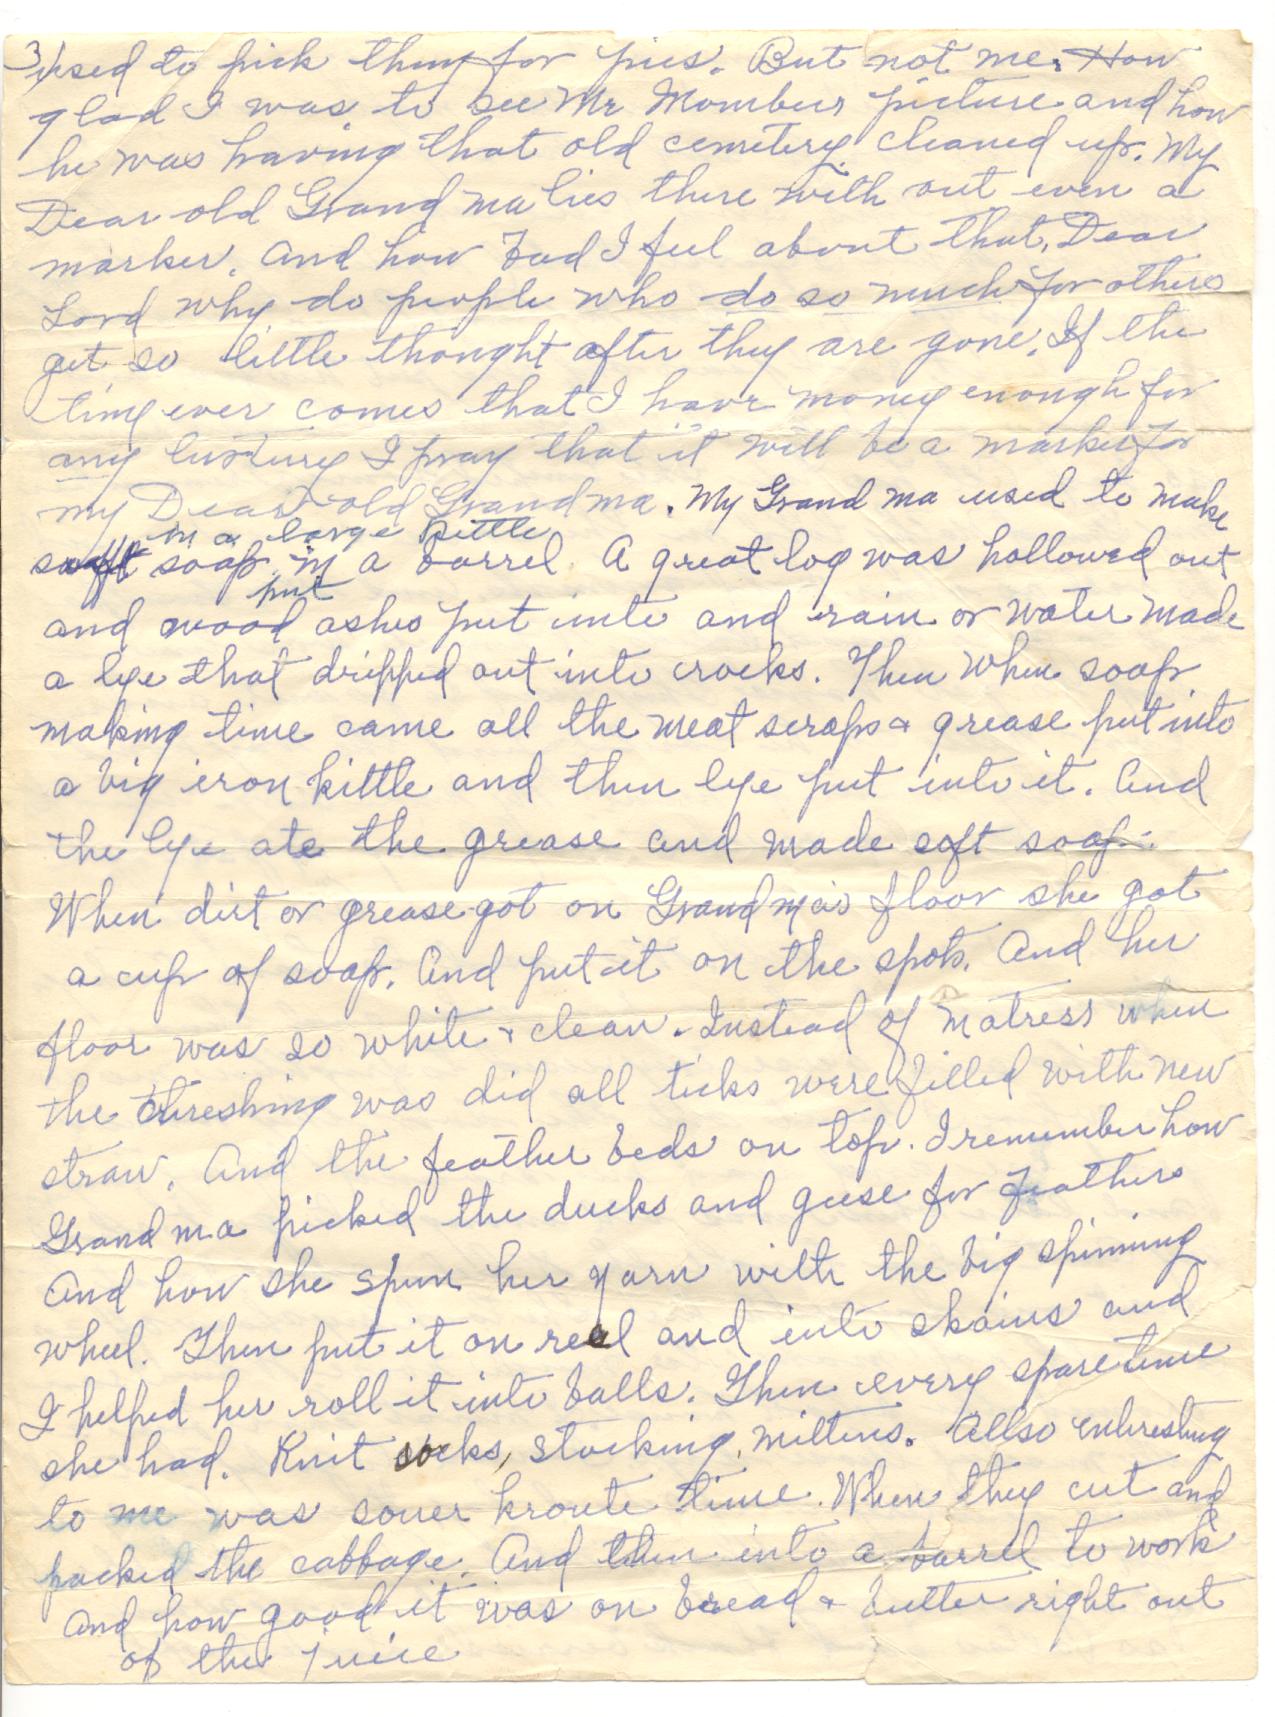 3/ used to pick them for pies. But not me. How
glad I was to see Mr Mombers picture and how
he was having that old cemetery cleaned up. My
Dear old Grand ma lies there with out even a
marker. And how bad I feel about that. Dear
Lord why do people who do so much for others
get so little thought after they are gone. If the
time ever comes that I have money enough for
any luxury I pray that it will be a marker for
my Dear old Grandma. My Grand ma used to make
in a large kittle
soft soap in a barrel. A great log was hollowed out
put
and wood ashes put into and rain or water made
a lye that dripped out into crocks. Then when soap
making time came all the meat scraps & grease put into
a big iron kittle and then lye put into it. And
the lye ate the grease and made soft soap.
When dirt or grease got on Grand ma's floor she got
a cup of soap. And put it on the spots. And her
floor was so white & clean. Instead of matress when
the threshing was did all ticks were filled with new
straw. And the feather beds on top. I remember how
Grand ma picked the ducks and geese for feathers
And how she spun her yarn with the big spinning
wheel. Then put it on reel and into skains and
I helped her roll it into balls. Then every spare time
she had. Knit socks, stocking, mittens. Allso entresting
to me was souer kroute time. When they cut and
packed the cabbage. And then into a barrel to work
And how good it was on bread & butter right out
of the juice